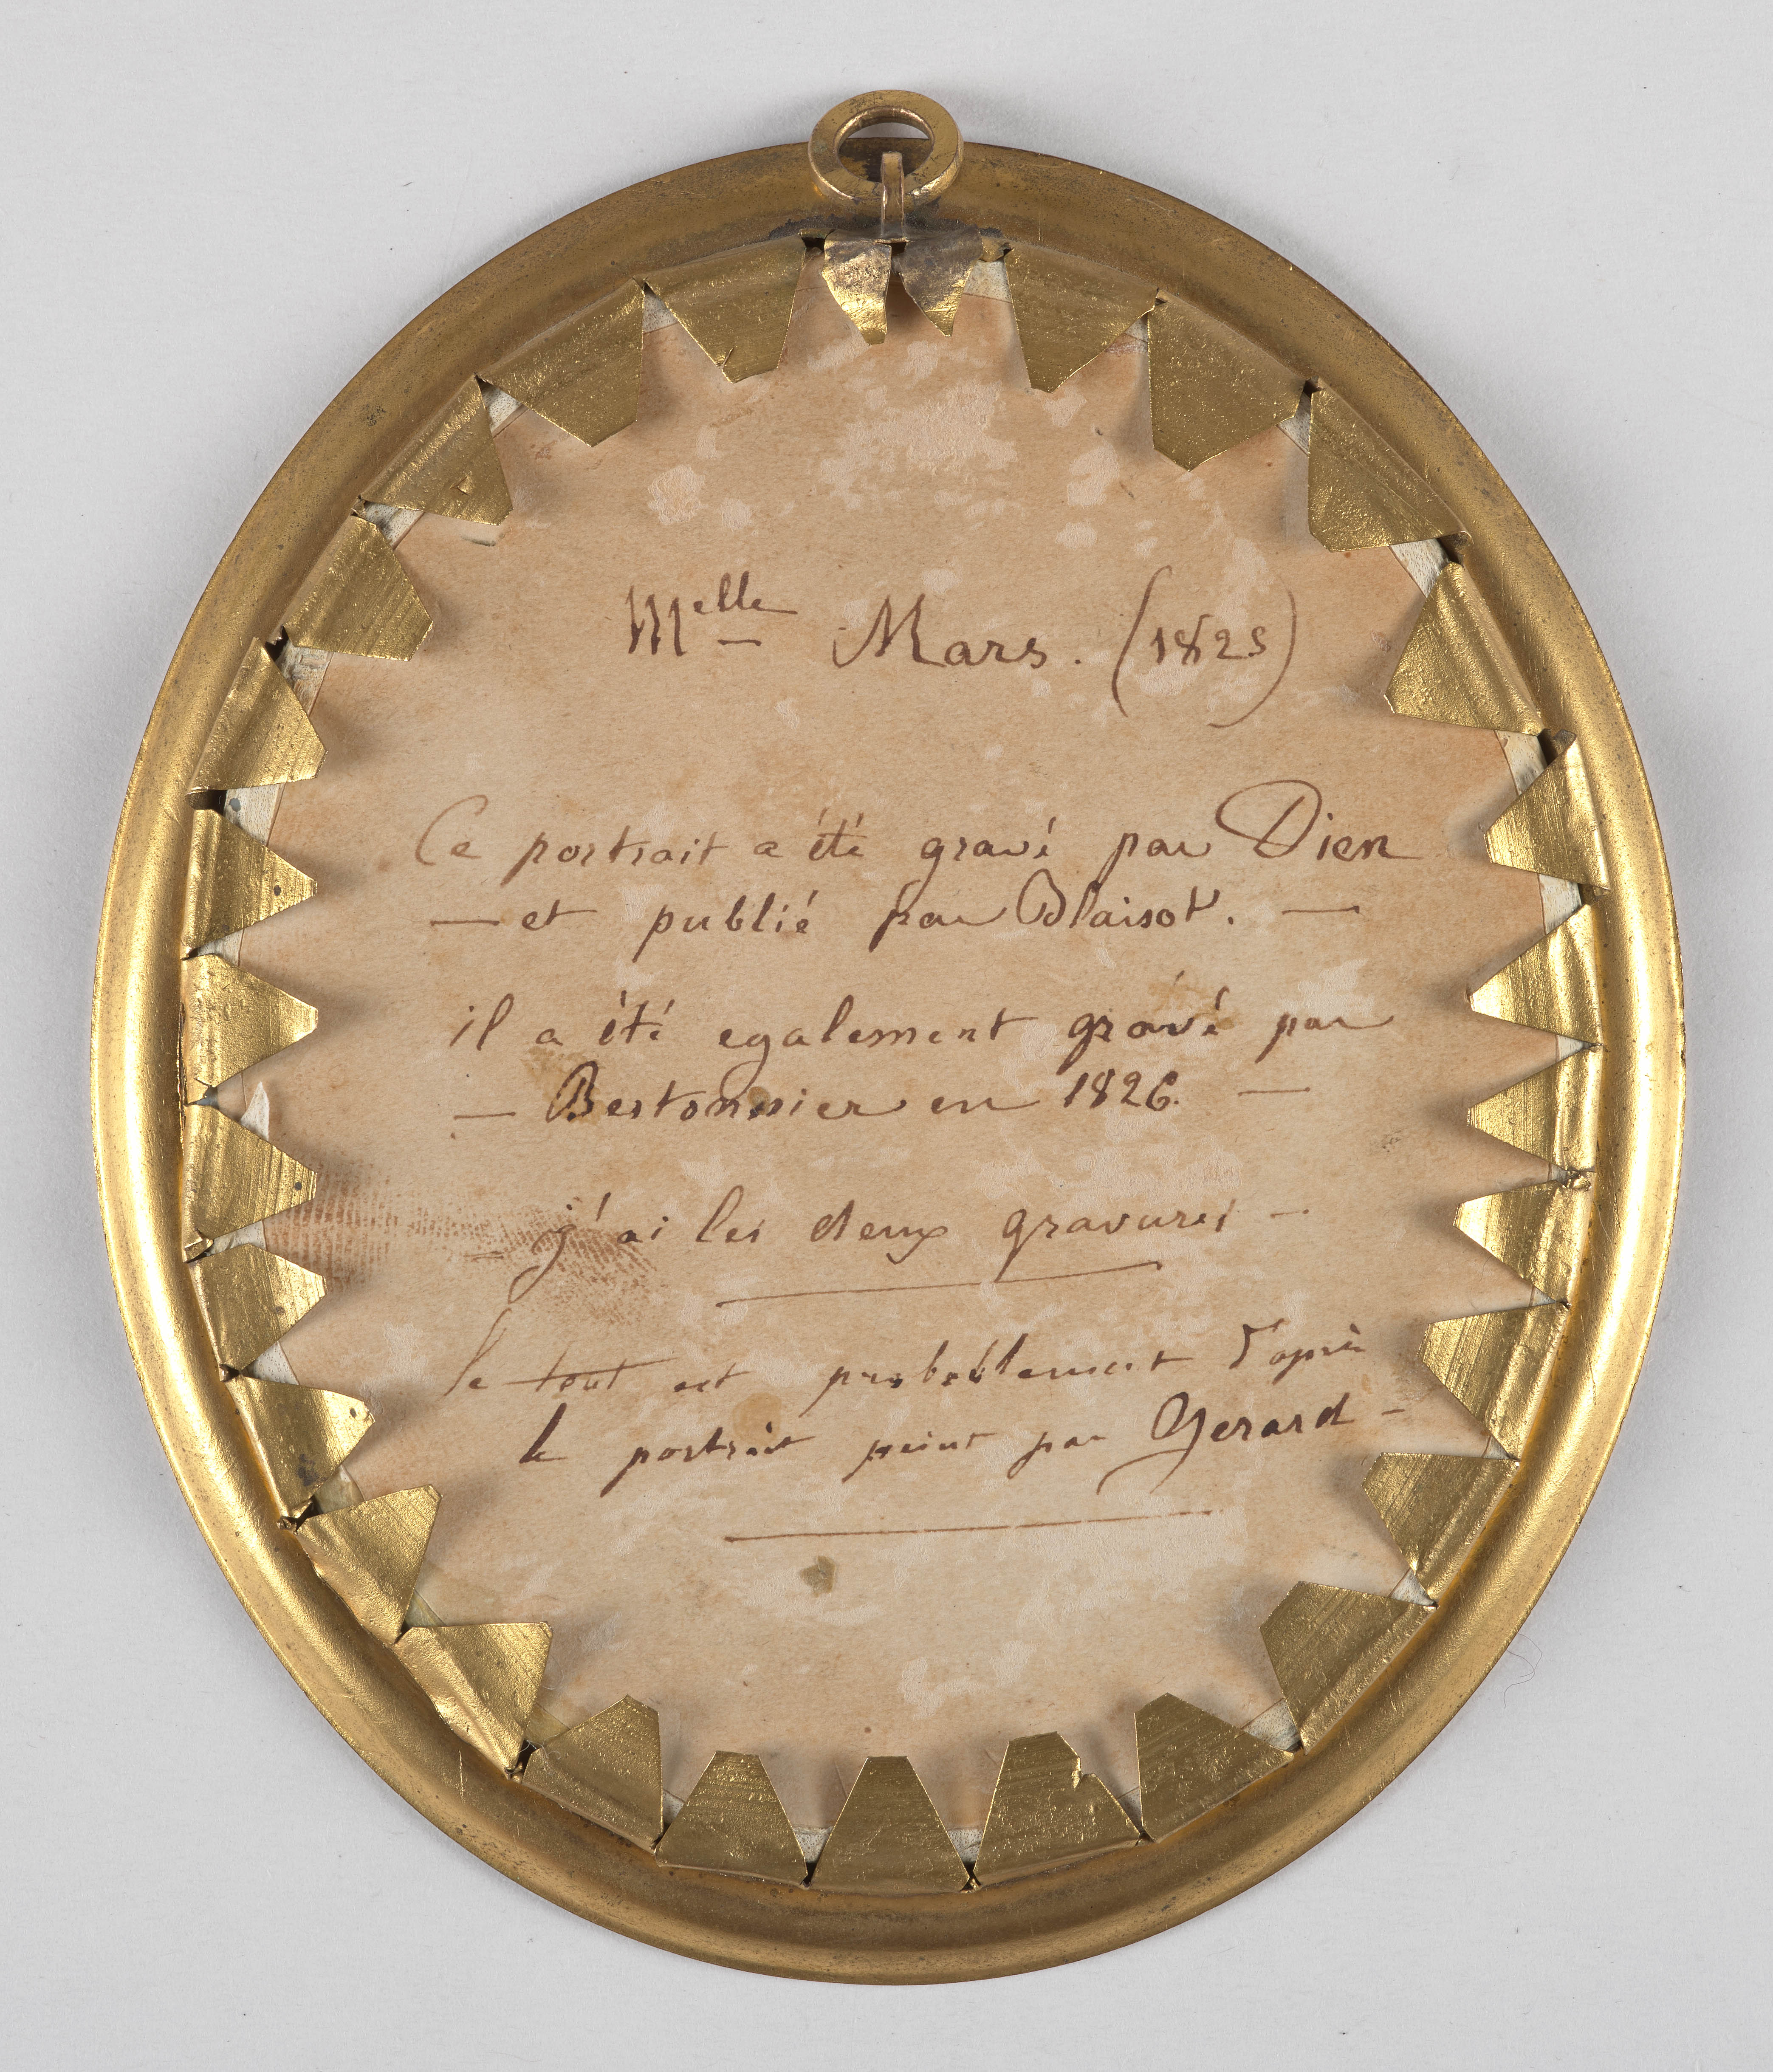 Melle Mars. (1825)
Ce portrait a été gravé par Dien
— et publié par Blaisot. —
il a été egalement gravé par
— Bertonnier en 1826. —
— j'ai les deux gravures —
le tout est probablement d'après
le portrait peint par Gerard —